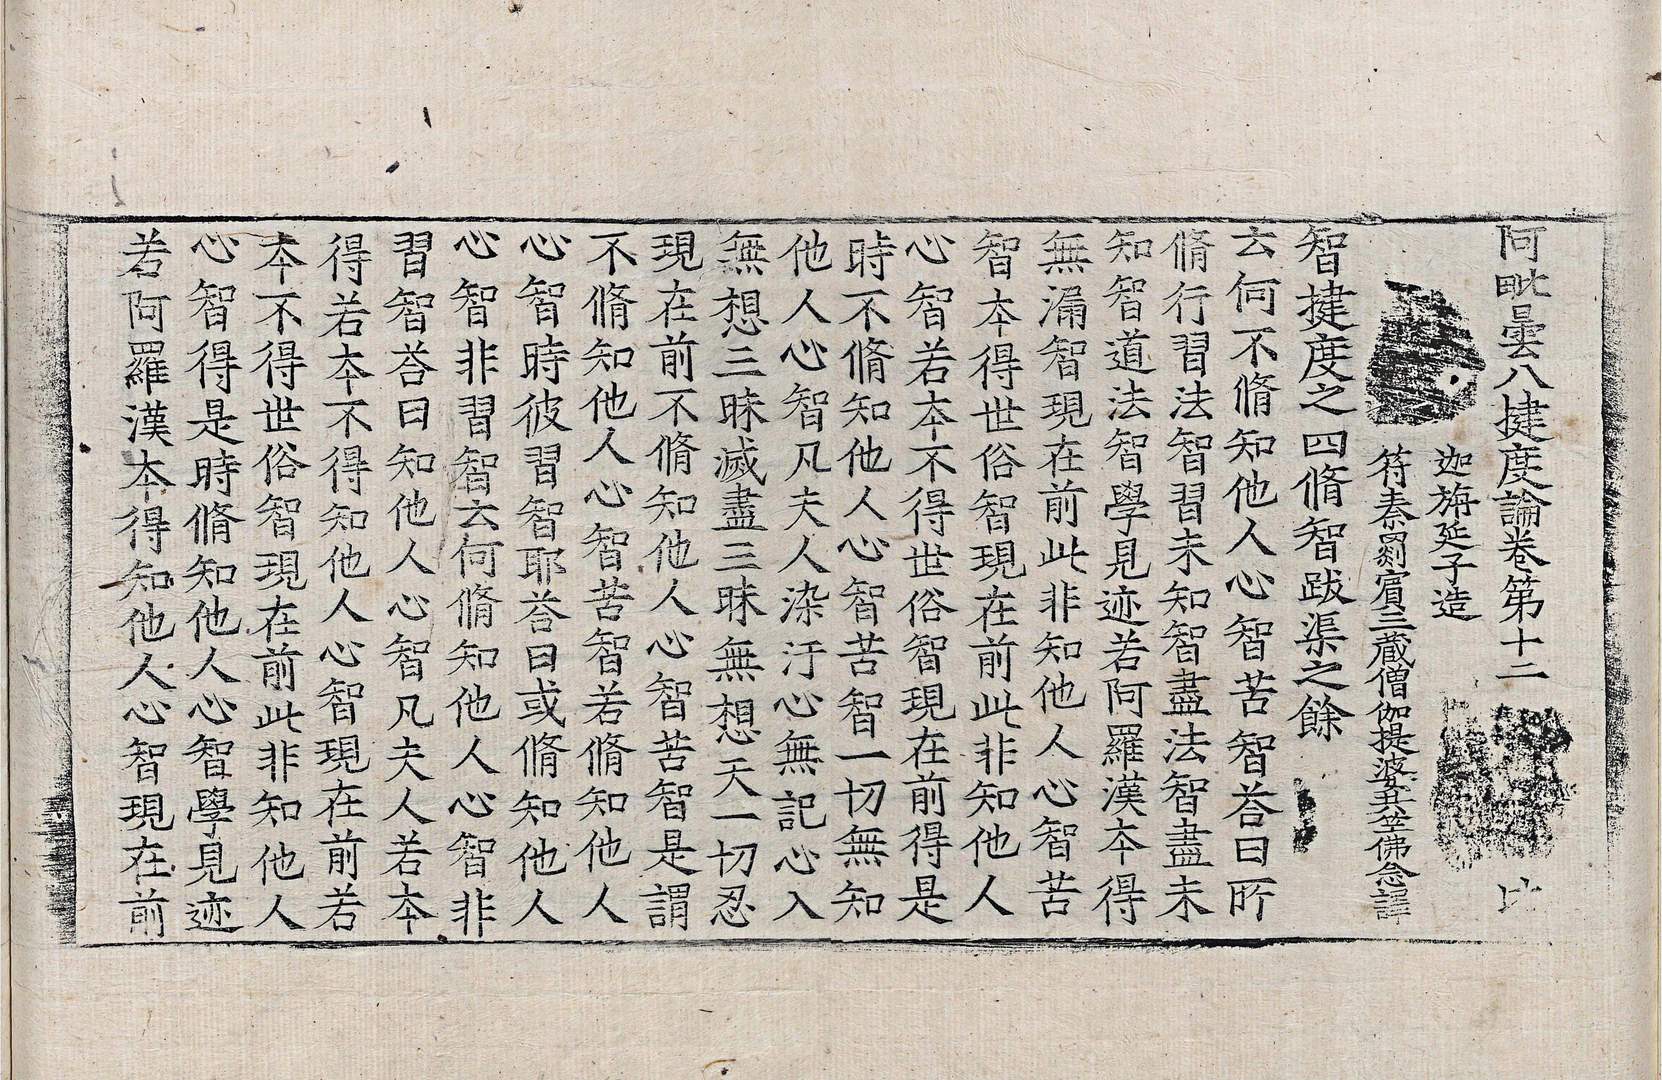 阿毗曇八揵度論卷第十二
迦旃延子造
符秦罽賓三藏僧伽提婆共竺佛念譯
智揵度之四脩智跋渠之餘
云何不脩知他人心智苦智荅曰所
脩行習法智習未知智盡法智盡未
知智道法智學見迹若阿羅漢本得
無漏智現在前此非知他人心智苦
智本得世俗智現在前此非知他人
心智若本不得世俗智現在前得是
時不脩知他人心智苦智一切無知
他人心智凡夫人染汙心無記心入
無想三昧滅盡三昧無想天一切忍
現在前不脩知他人心智苦智是謂
不脩知他人心智苦智若脩知他人
心智時彼習智耶荅曰或脩知他人
心智非習智云何脩知他人心智非
習智荅曰知他人心智凡夫人若本
得若本不得知他人心智現在前若
本不得世俗智現在前此非知他人
心智得是時脩知他人心智學見迹
若阿羅漢本得知他人心智現在前